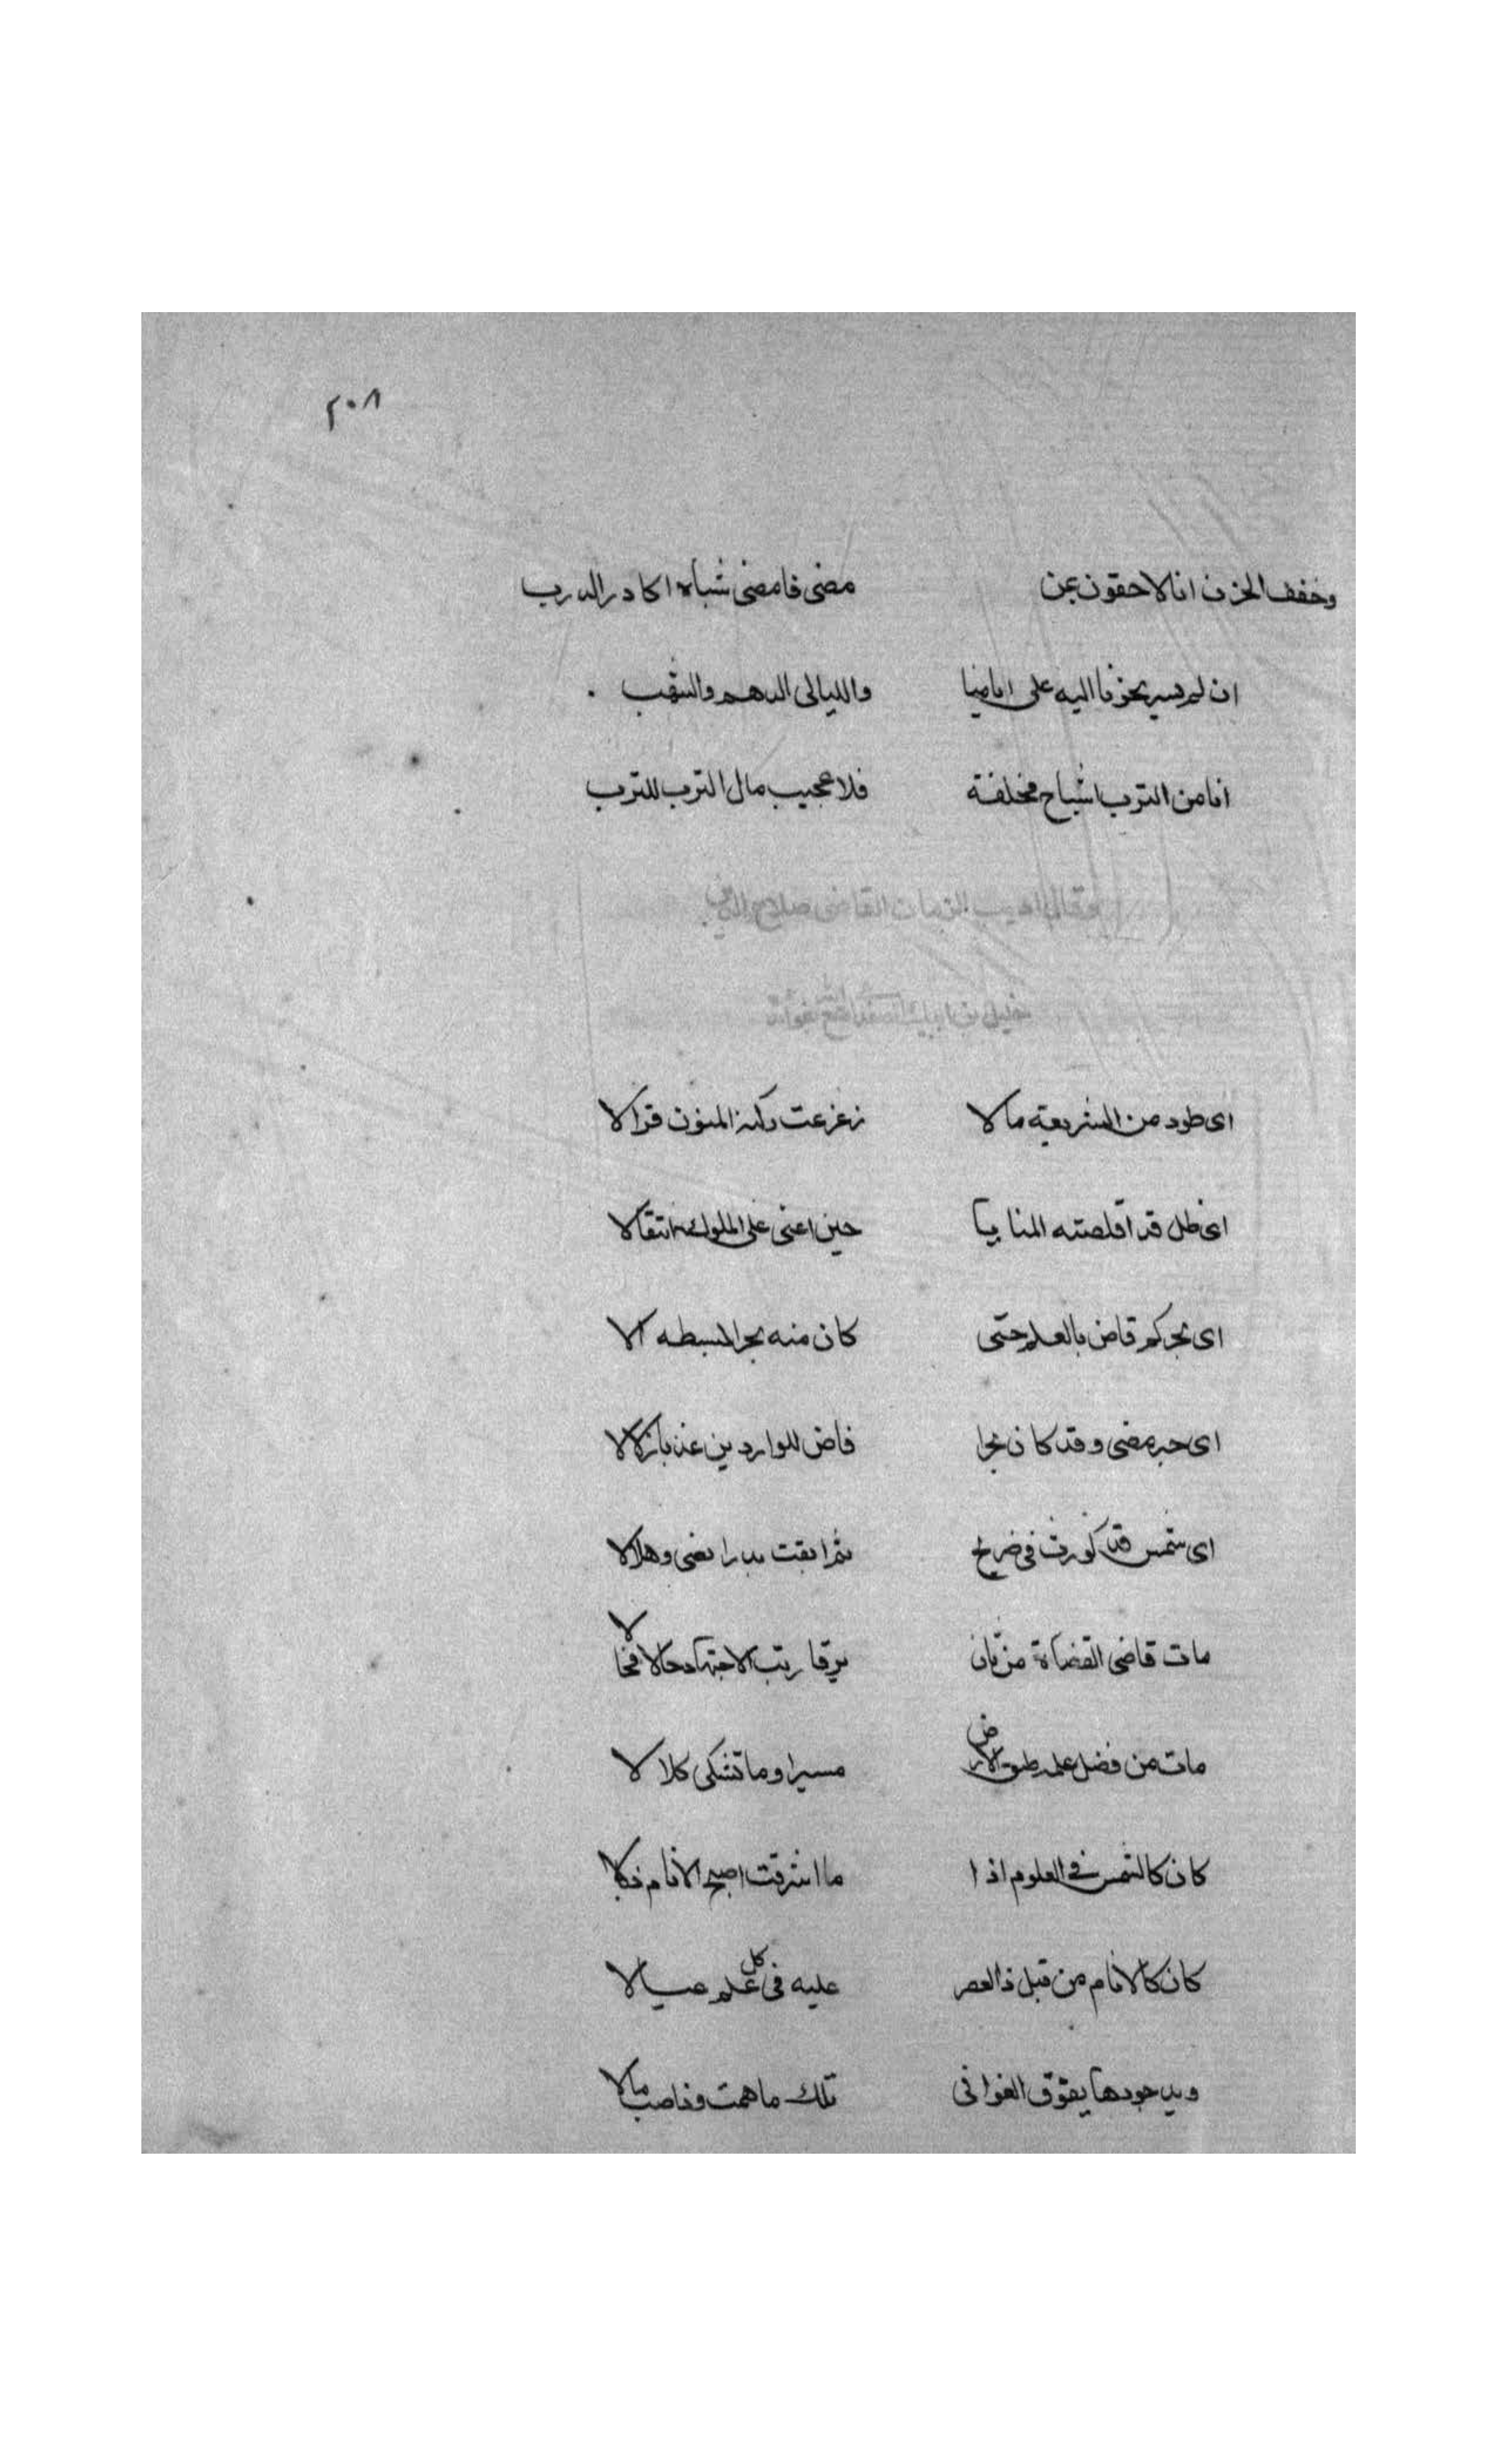 ٢٠٨
وخفف الحزن انا لاحقون بمن مضى فامضى شباه اكادر الدرب
ان لم يسير نحونا اليه على ايامنا والليالى الدهم والشهب
انا من الترب اشباح مخلفة فلا عجيب مال الترب للترب
وقال اديب الزمان القاضى صلاح الدين
خليل بن ايبك الصفدى
اى طود من الشريعة مالا زعزعت ركنه المنون فزالا
اى ظل قد اقلصته المنايا حين اعنى على الملوك انتقالا
اى بحر كم فاض بالعلم حتى كان منه بحر البسيطه الا
اى حبر مضى وقد كان بحرا فاض للواردين عذبا زلالا
اى شمس قد كورت فى ضريح ثم ابقت بدرا يضى وهلالا
مات قاضى القضاة من كان يرقا رتب الاجتهاد حالا فحالا
مات من فضل علمه طبق الارض مسيرا وما تشكى كلالا
كان كالشمس فى العلوم اذا ما اشرقت اصبح الانام ذبالا
كان كالانام من قبل ذا العصر عليه فى كل علم عيالا
وبد جودها يفوق الغوانى تلك ماهمت وناصب مالا